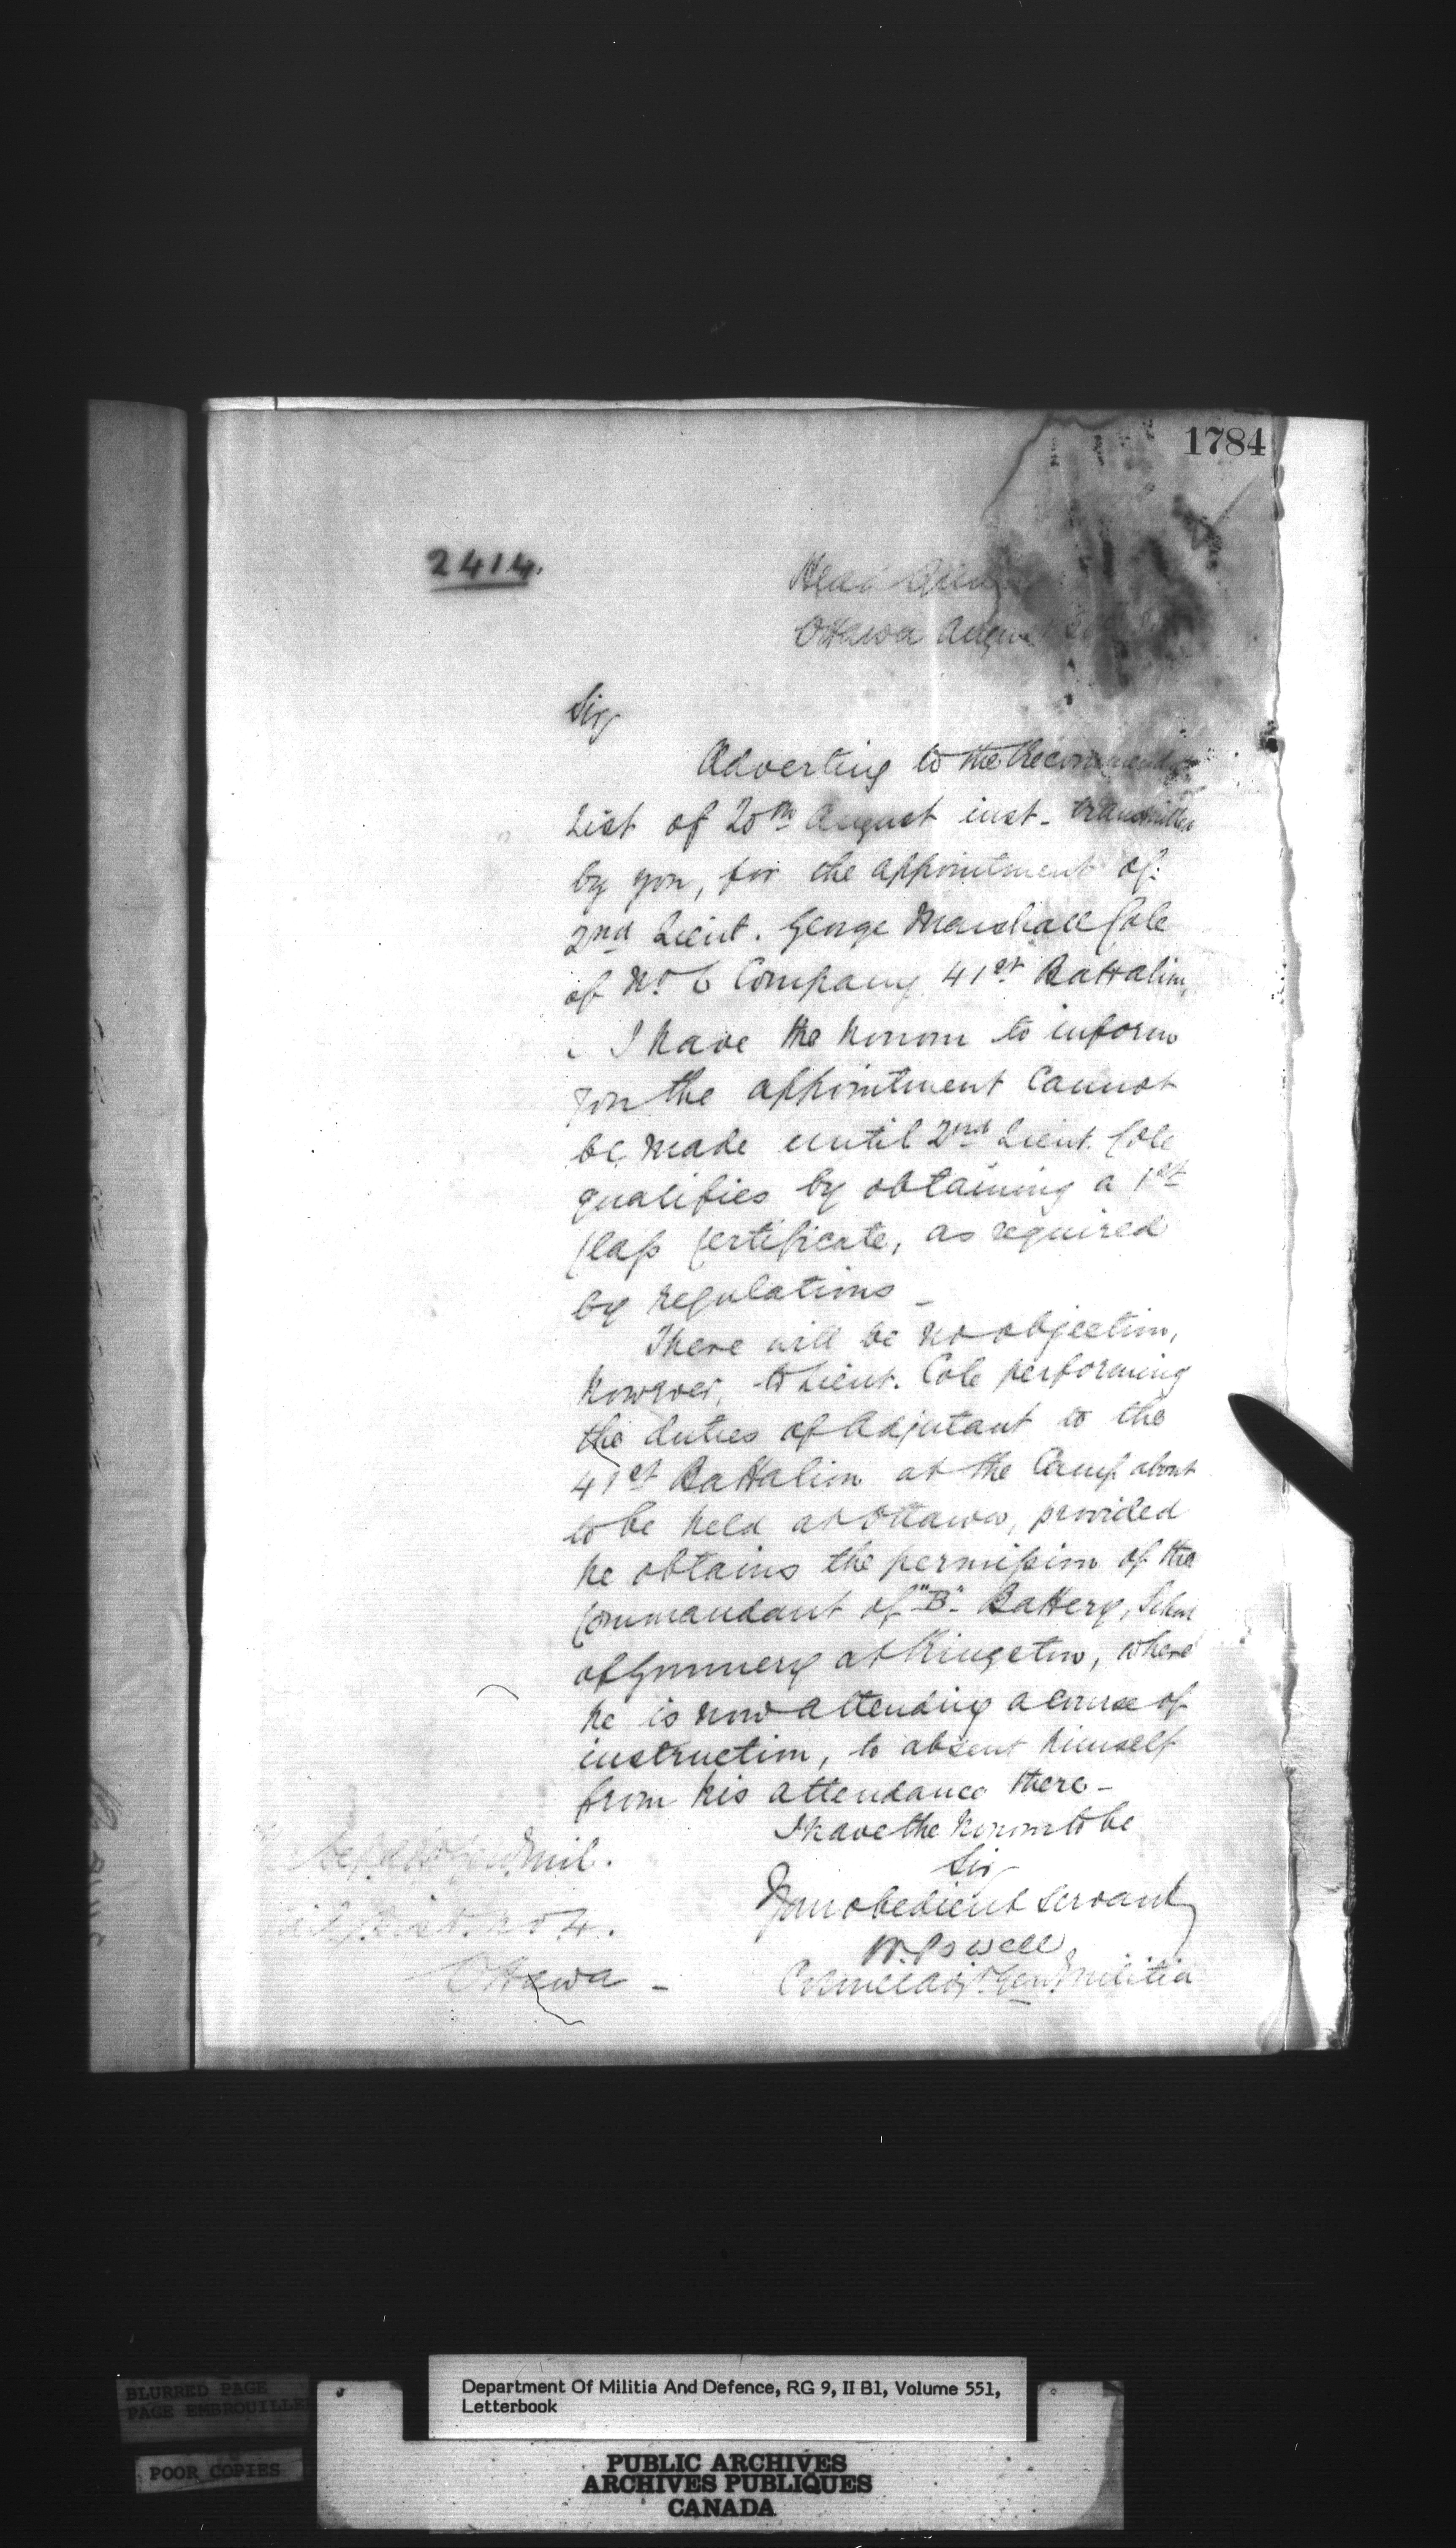 1784
2414.
Head
Ottawa August
Sir,
Adverting to the Recommend
List of 20th August inst. transmitted
by you, for the appointment of
2nd Lieut. George Marshall Cole
of No. 6 Company 41st Battalion,
I have the honour to inform
you the appointment cannot
be made until 2nd Lieut. Cole
qualifies by obtaining a 1st
Class Certificate, as required
by regulations _
There will be no objection,
however, to Lieut. Cole performing
the duties of Adjutant to the
41st Battalion at the Camp about
to be held at Ottawa, provided
he obtains the permission of the
Commandant of "B" Battery, School
of Gunnery at Kingston, where
he is now attending a course of
instruction, to absent himself
from his attendance there -
I have the honour to be
Sir
Your obedient servant
W. Powell
Colonel Adjt. Genl. Militia
Mil.
Dist. No 4.
Ottawa _
Department Of Militia And Defence, RG 9, II B1, Volume 551,
Letterbook
BLURRED PAGE
PAGE EMBROUILLE
POOR COPIES
PUBLIC ARCHIVES
ARCHIVES PUBLIQUES
CANADA